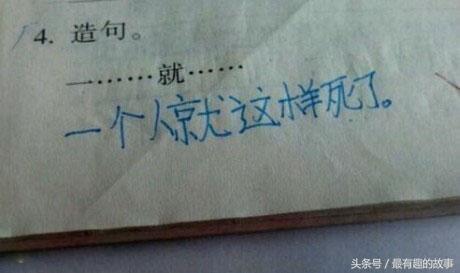 4. 造句。
一……就……
一个人就这样死了。
头条号 / 最有趣的故事